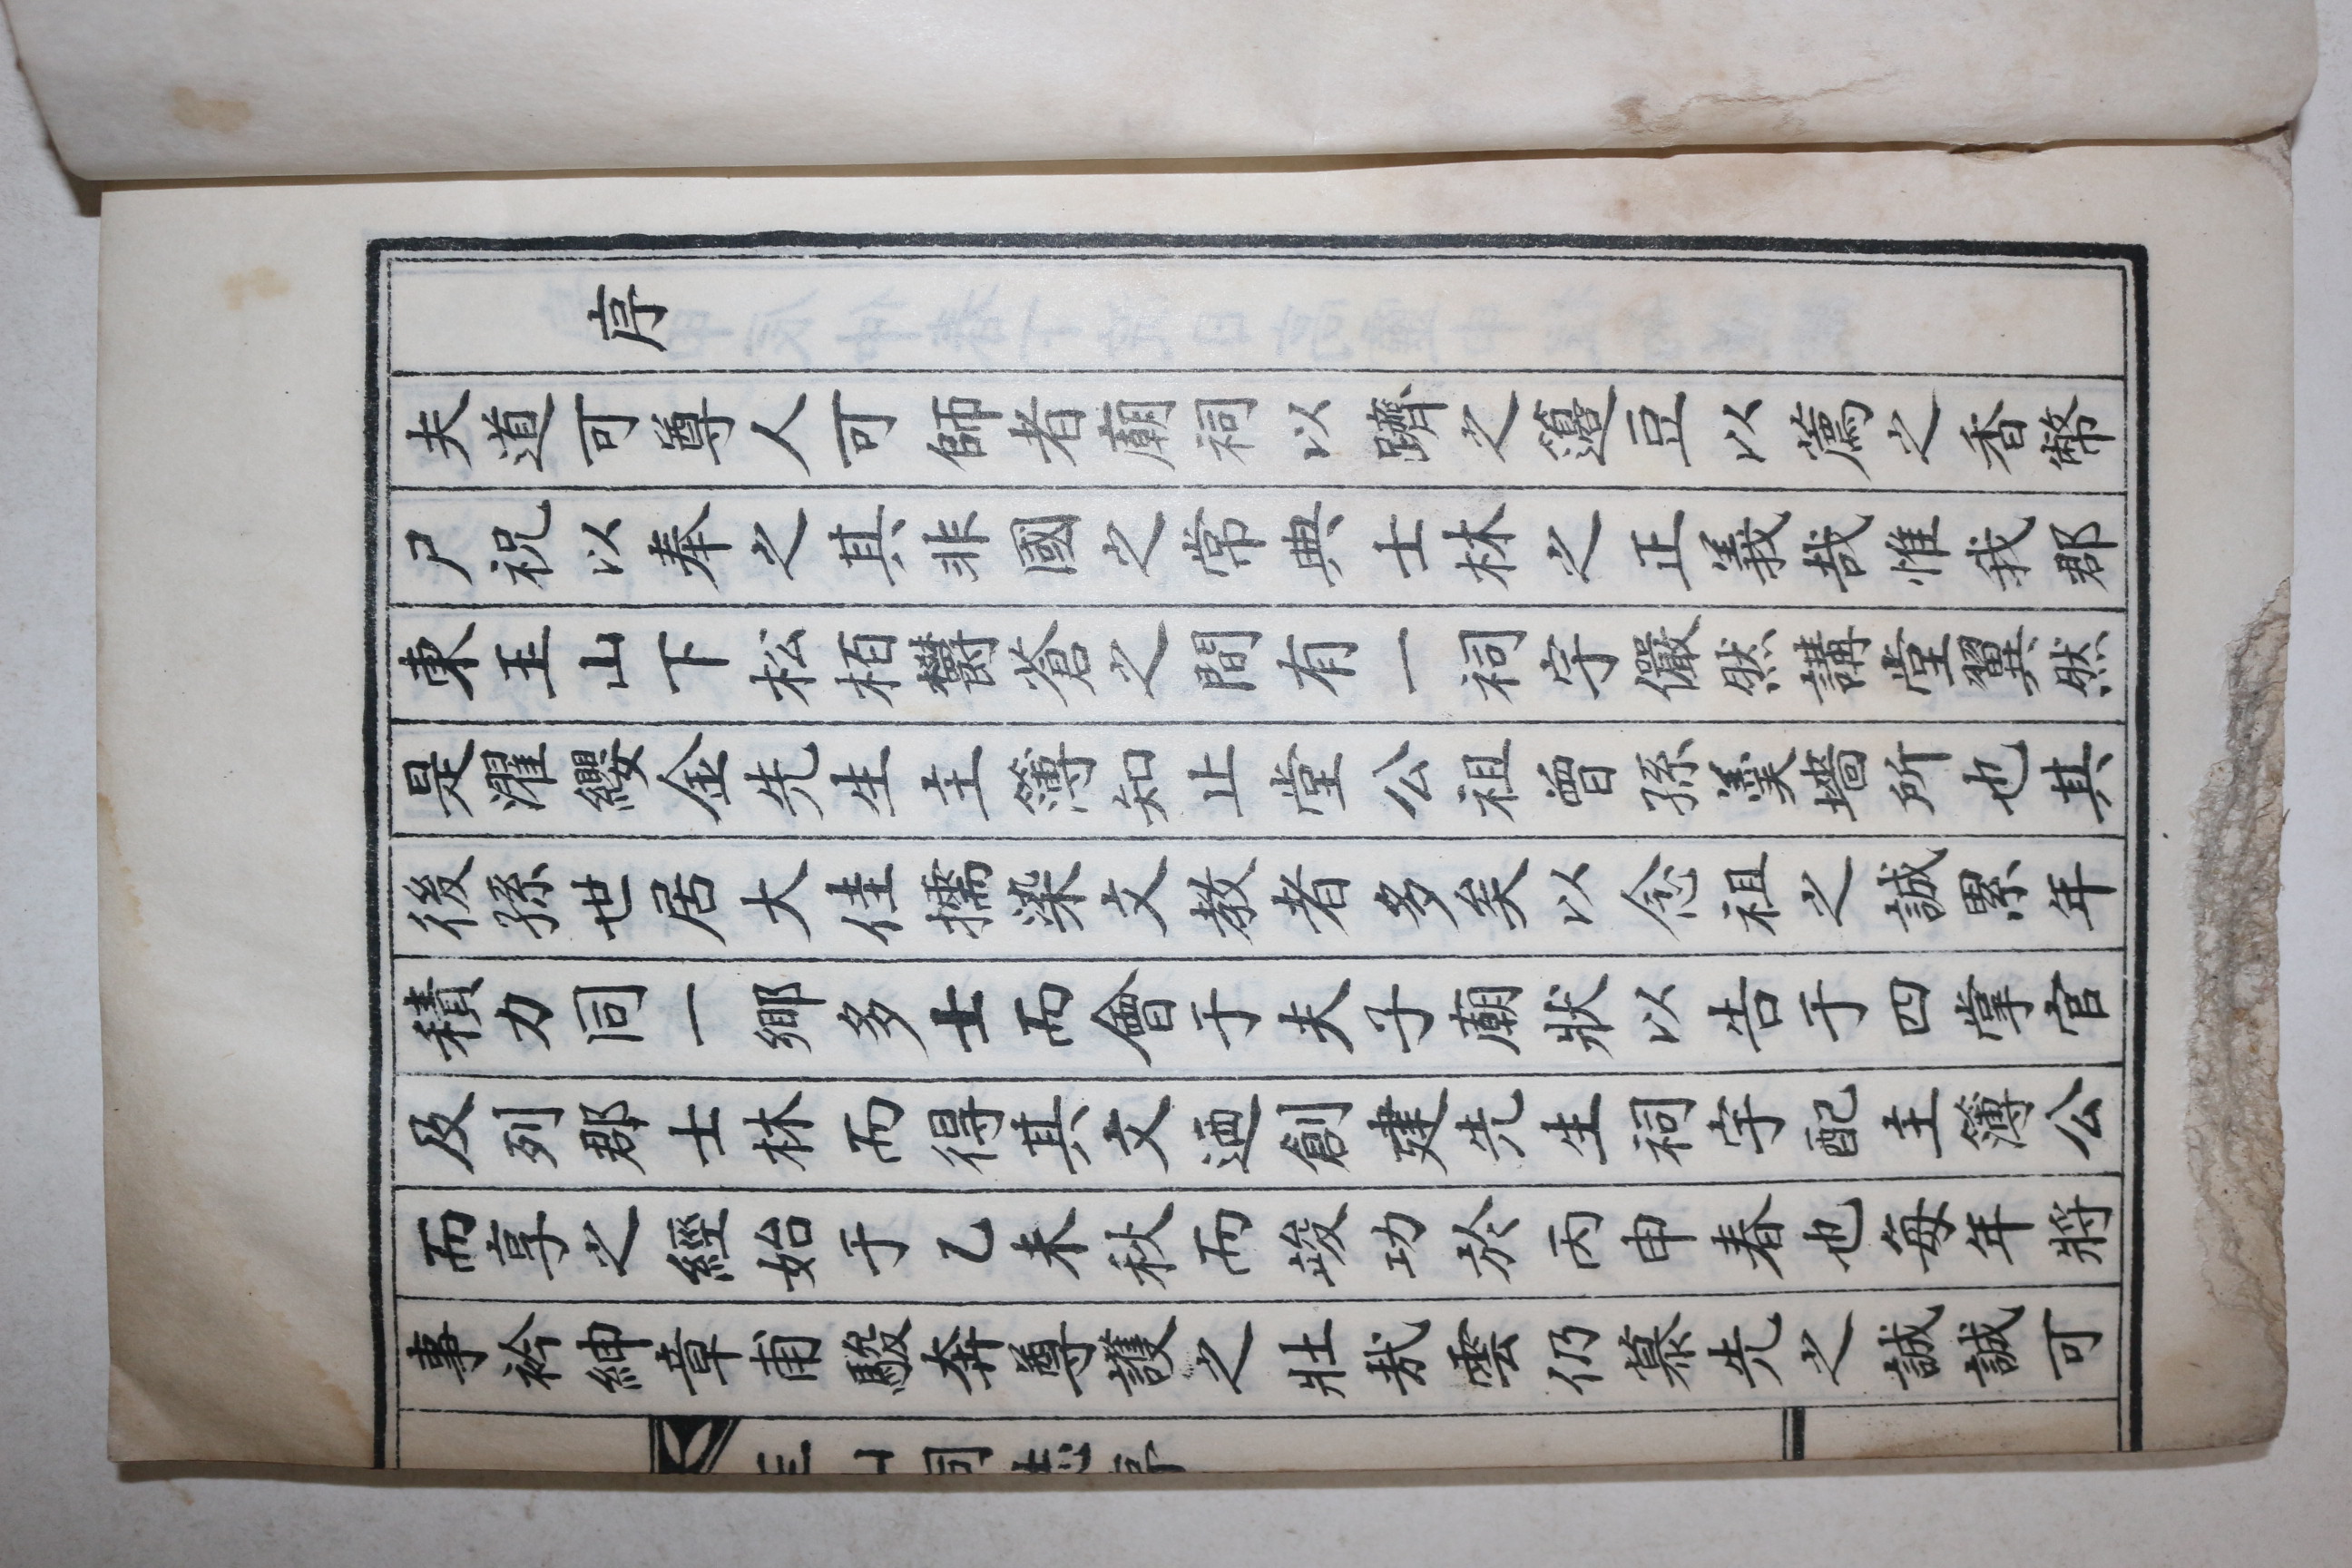 序
夫道可尊人可師者廟祠以躋之籩豆以薦之香幣
尸祝以奉之其非國之常典士林之正義哉惟我郡
東玉山下松栢欝蒼之間有一祠宇儼然講堂翼然
是濯纓金先生主簿知止堂公祖曾孫羹墻所也其
後孫世居大佳擩染文教者多矣以念祖之誠累年
積力同一鄉多士而會于夫子廟狀以告于四掌官
及列郡士林而得其文迺創建先生祠宇配主簿公
而享之經始于乙未秋而竣功於丙申春也每年將
事衿紳章甫駿奔尊護之壯哉雲仍慕先之誠誠可
山祠誌序